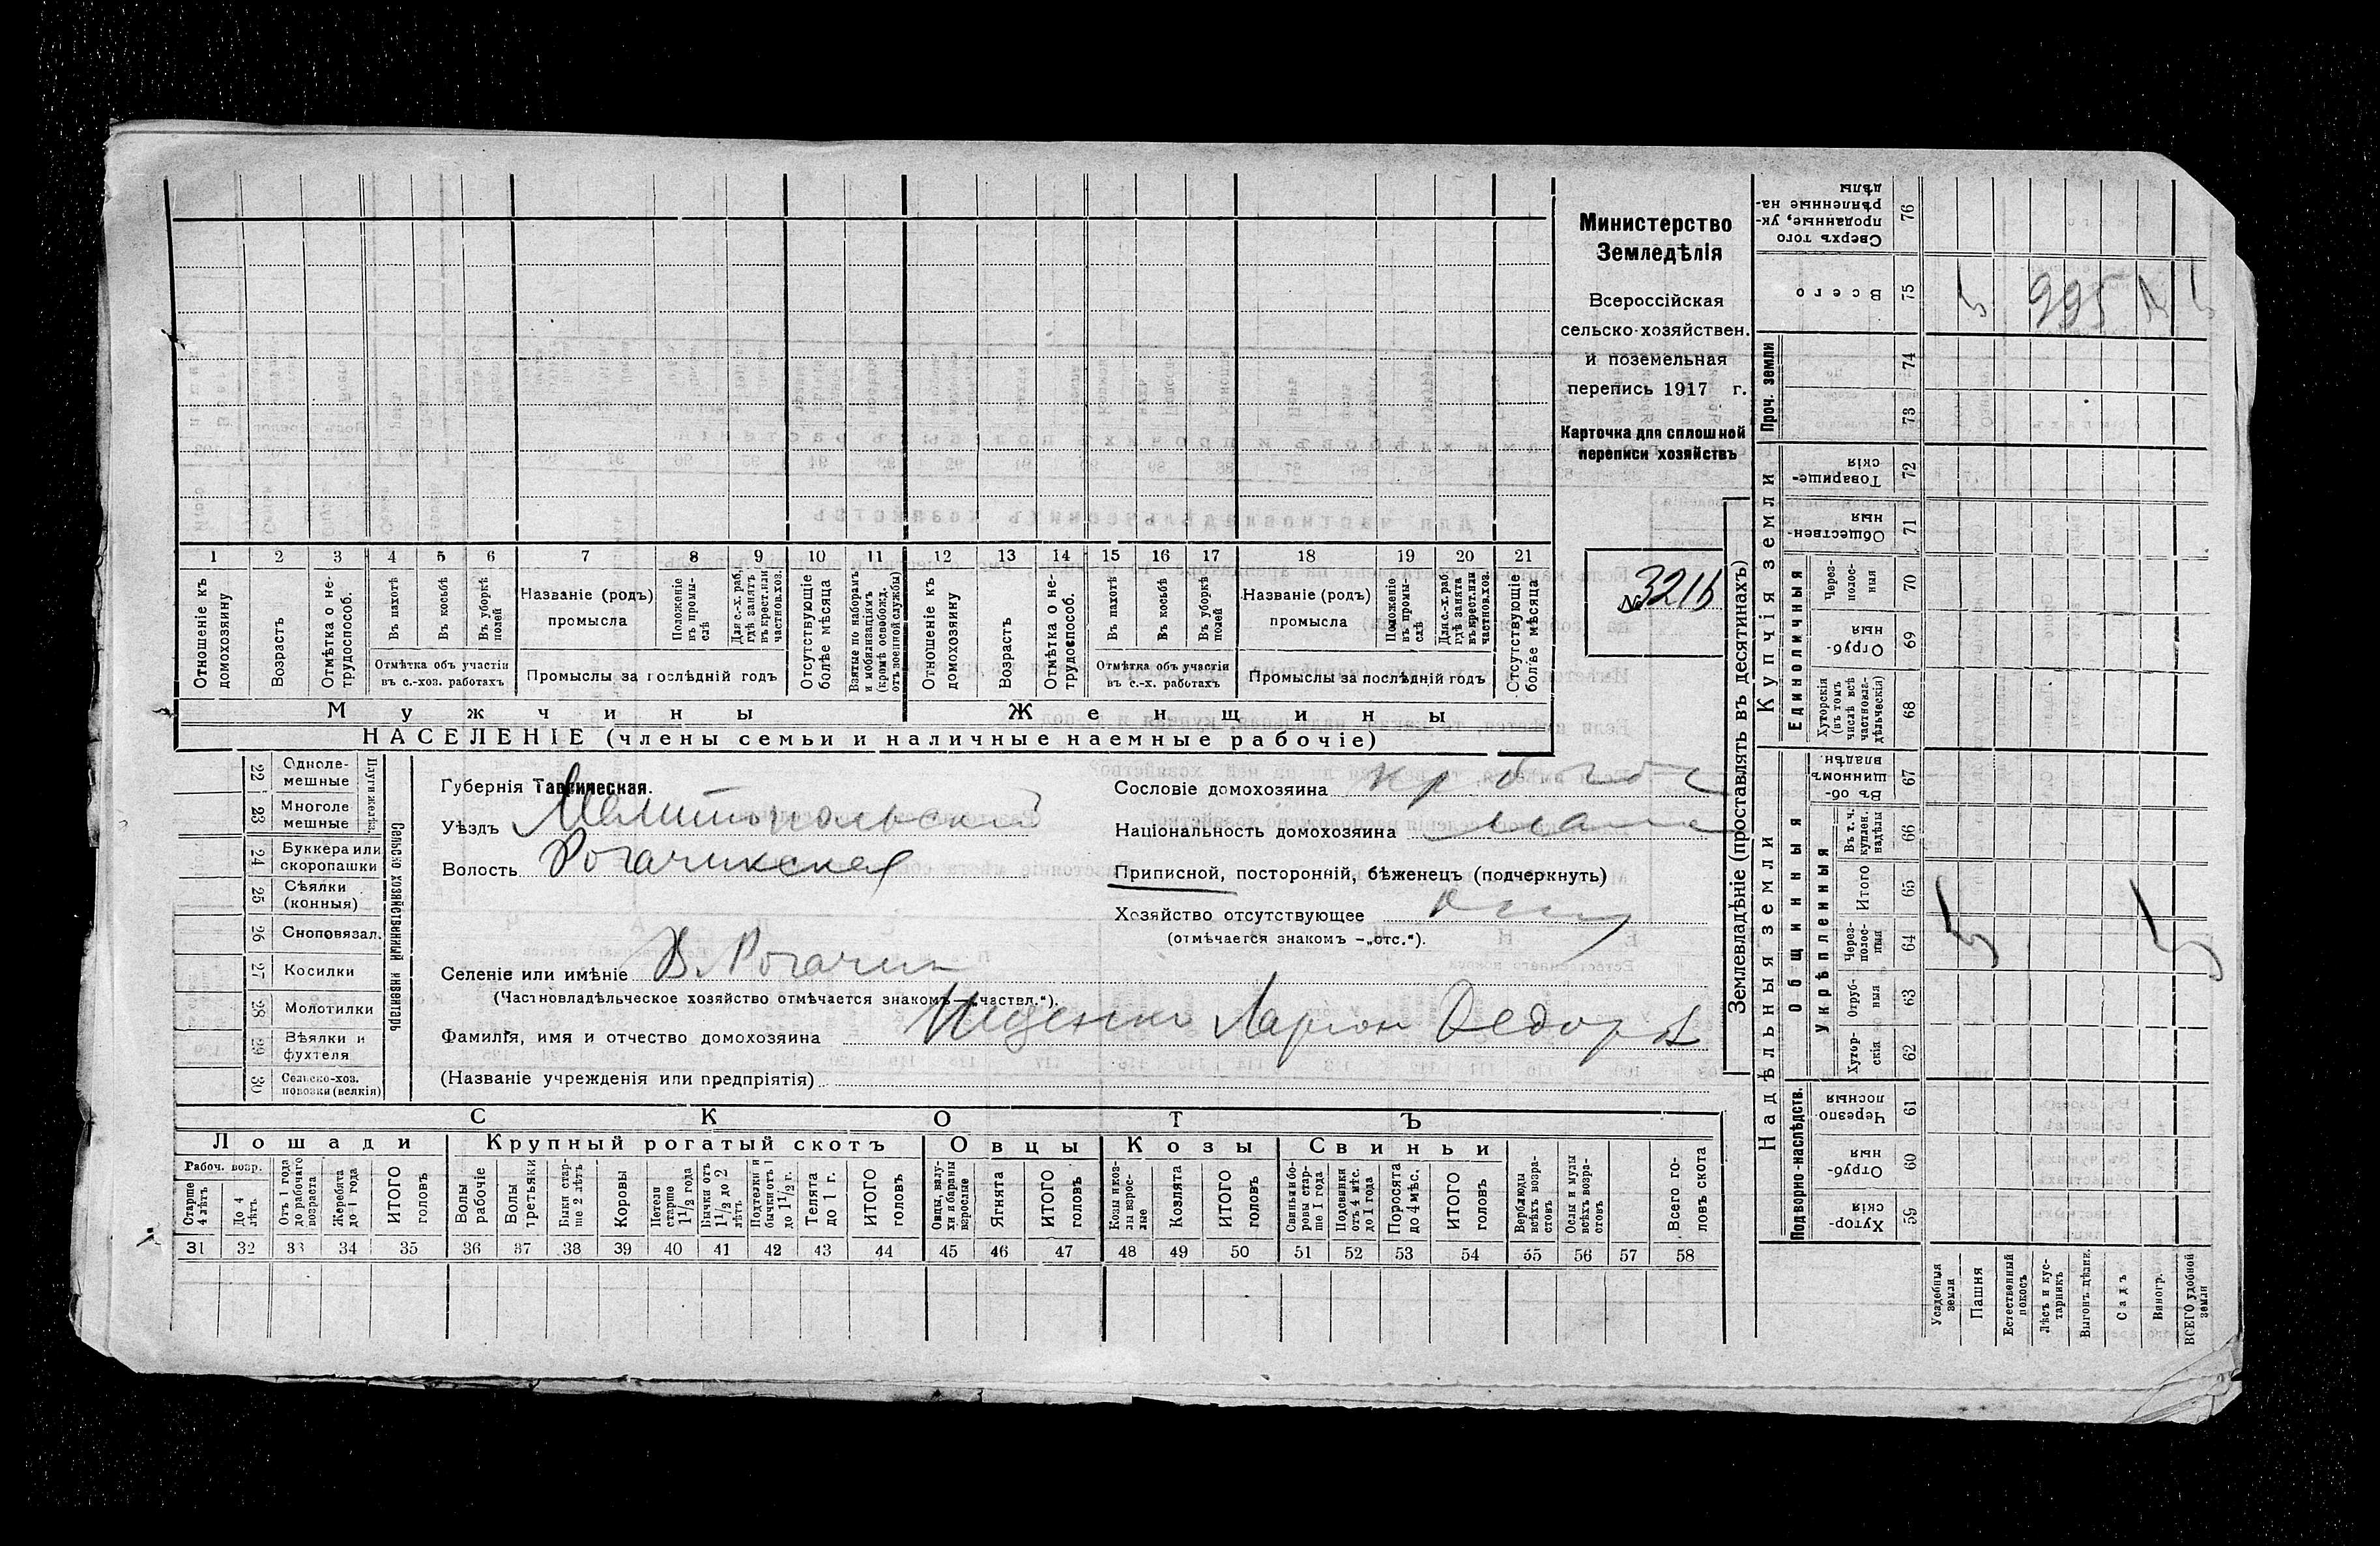 Министерство
Земледѣлія
Всероссійская
сельско-хозяйствен.
и поземельная
перепись 1917 г.
Карточка для сплошной
переписи хозяйствъ
№ 3216
1 2 3 4 5 6 7 8 9 10 11 12 13 14 15 16 17 18 19 20 21
Отношеніе къ домохозяину
Возрастъ
Отмѣтка о не-трудоспособ.
Въ пахотѣ
Въ косьбѣ
Въ уборкѣ полей
Отмѣтка объ участіи въ с.-хоз. работахъ
Названіе (родъ) промысла
Положеніе въ промы-слѣ
Для с.-х. раб. гдѣ занятъ въ крест. или частнов. хоз.
Промыслы за послѣдній годъ
Отсутствующіе болѣе мѣсяца
Взятые по наборамъ и мобилизаціямъ (кромѣ освобожд. отъ военной службы)
Отношеніе къ домохозяину
Возрастъ
Отмѣтка о не-трудоспособ.
Въ пахотѣ
Въ косьбѣ
Въ уборкѣ полей
Отмѣтка объ участіи въ с.-х. работахъ
Названіе (родъ) промысла
Положеніе въ промы-слѣ
Для с.-х. раб. гдѣ занята въ крест. или частнов. хоз.
Промыслы за послѣдній годъ
Отсутствующіе болѣе мѣсяца
Мужчины
Женщины
НАСЕЛЕНІЕ (члены семьи и наличные наемные рабочіе)
22 Одноле-мешные
23 Многоле мешные
Плуги желѣз.
24 Буккера или скоропашки
25 Сѣялки (конныя)
26 Сноповязал.
27 Косилки
28 Молотилки
29 Вѣялки и фухтеля
30 Сельско-хоз. повозки (всякія)
Сельско хозяйственный инвентарь
Губернія Таврическая.
Уѣздъ Мелитопольский
Волость Рогачикская
Селеніе или имѣніе В. Рогачик
(Частновладѣльческое хозяйство отмѣчается знакомъ—„частвл.“).
Фамилія, имя и отчество домохозяина Ищенко Ларіон Федоров
(Названіе учрежденія или предпріятія)
Сословіе домохозяина
Національность домохозяина
Приписной, посторонній, бѣженец (подчеркнуть)
Хозяйство отсутствующее
(отмѣчается знакомъ —„отс.“).
СКОТЪ
Лошади
Крупный рогатый скотъ
Овцы
Козы
Свиньи
Рабоч. возр.
Старше 4 лѣтъ
До 4 лѣтъ
Отъ 1 года до рабочаго возраста
Жеребята до 1 года
ИТОГО головъ
Волы рабочіе
Волы третьяки
Быки стар-ше 2 лѣтъ
Коровы
Нетели старше 1½ года
Бычки отъ 1½ до 2 лѣтъ
Подтелки и бычки отъ 1 до 1½ г.
Телята до 1 г.
ИТОГО головъ
Овцы, валу-хи и бараны взрослые
Ягнята
ИТОГО головъ
Козы и коз-лы взрос-лые
Козлята
ИТОГО головъ
Свиньи и бо-ровы стар-ше 1 года
Подсвинки отъ 4 мѣс. до 1 года
Поросята до 4 мѣс.
ИТОГО головъ
Верблюды всѣхъ возра-стовъ
Ослы и мулы всѣхъ возра-стовъ
Всего го-ловъ скота
31 32 33 34 35 36 37 38 39 40 41 42 43 44 45 46 47 48 49 50 51 52 53 54 55 56 57 58
Землевладѣніе (проставлять въ десятинахъ)
Надѣльныя земли
Купчія земли
Проч. земли
Подворно-наслѣдств.
Общинныя
Укрѣпленныя
Единоличныя
76 Сверхъ того проданные, ук-рѣпленные на-дѣлы
75 Всего 5 995
74
73
72 Товарище-скія
71 Обществен-ныя
70 Через-полос-ныя
69 Отруб-ныя
68 Хуторскія (въ томъ числѣ всѣ частновла-дѣльческія)
67 Въ об-щинномъ владѣн.
66 Въ т. ч. куплен. надѣлы
65 Итого
64 Через-полос-ныя 5 5
63 Отруб-ныя
62 Хутор-скія
61 Черезпо-лосныя
60 Отруб-ныя
59 Хутор-скія
Усадебныя земли
Пашня
Естественный покосъ
Лѣсъ и кус-тарникъ
Выгонъ цѣлик.
Садъ
Виногр.
ВСЕГО удобной земли